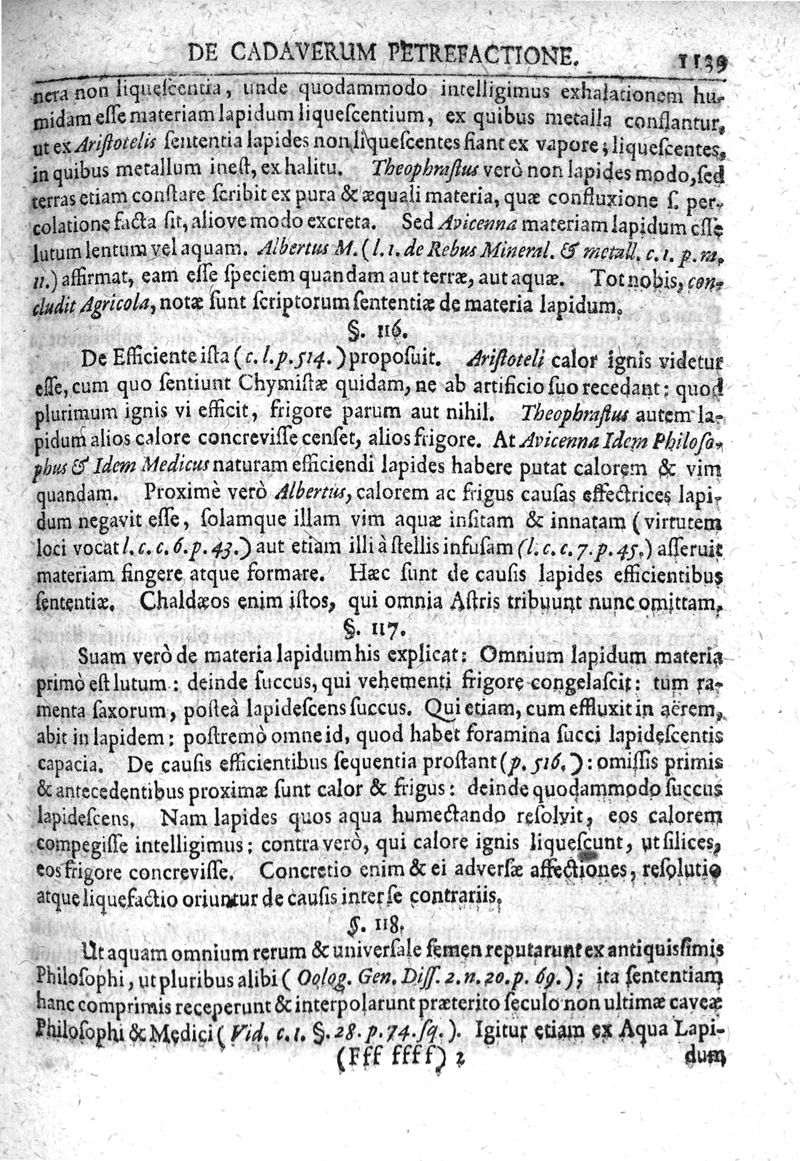 DE CADAVERUM PETREFACTIONE. 1139
nera non liqueſcentia, unde quodammodo intelligimus exhalationem hu-
midam eſſe materiam lapidum liqueſcentium, ex quibus metalla conflantur,
ut ex Ariſtotelis ſententia lapides non liqueſcentes fiant ex vapore; liqueſcentes,
in quibus metallum ineſt, ex halitu. Theophraſtus verò non lapides modo, ſed
terras etiam conſtare ſcribit ex pura & æquali materia, quæ confluxione ſ. per-
colatione facta ſit, aliove modo excreta. Sed Avicenna materiam lapidum eſſe
lutum lentum vel aquam. Albertus M. (l. 1. de Rebus Mineral. & metall. c. 1. p. m.
11.) affirmat, eam eſſe ſpeciem quandam aut terræ, aut aquæ. Tot nobis, con-
cludit Agricola, notæ ſunt ſcriptorum ſententiæ de materia lapidum.
§. 116.
De Efficiente iſta (c. l. p. 514.) propoſuit. Ariſtoteli calor ignis videtur
eſſe, cum quo ſentiunt Chymiſtæ quidam, ne ab artificio ſuo recedant: quod
plurimum ignis vi efficit, frigore parum aut nihil. Theophraſtus autem la-
pidum alios calore concreviſſe cenſet, alios frigore. At Avicenna Idem Philoſo-
phus & Idem Medicus naturam efficiendi lapides habere putat calorem & vim
quandam. Proximè verò Albertus, calorem ac frigus cauſas effectrices lapi-
dum negavit eſſe, ſolamque illam vim aquæ inſitam & innatam (virtutem
loci vocat l. c. c. 6. p. 43.) aut etiam illi à ſtellis infuſam (l. c. c. 7. p. 45.) aſſeruit
materiam fingere atque formare. Hæc ſunt de cauſis lapides efficientibus
ſententiæ. Chaldæos enim iſtos, qui omnia Aſtris tribuunt nunc omittam.
§. 117.
Suam verò de materia lapidum his explicat: Omnium lapidum materia
primò eſt lutum: deinde ſuccus, qui vehementi frigore congelaſcit: tum ra-
menta ſaxorum, poſteà lapideſcens ſuccus. Qui etiam, cum effluxit in aërem,
abit in lapidem: poſtremò omne id, quod habet foramina ſucci lapideſcentis
capacia. De cauſis efficientibus ſequentia proſtant (p. 516.): omiſſis primis
& antecedentibus proximæ ſunt calor & frigus: deinde quodammodo ſuccus
lapideſcens. Nam lapides quos aqua humectando reſolvit, eos calorem
compegiſſe intelligimus: contra verò, qui calore ignis liqueſcunt, ut ſilices,
eos frigore concreviſſe. Concretio enim & ei adverſæ affectiones, reſolutio
atque liquefactio oriuntur de cauſis inter ſe contrariis.
§. 118.
Ut aquam omnium rerum & univerſale ſemen reputarunt ex antiquiſſimis
Philoſophi, ut pluribus alibi (Oolog. Gen. Diſſ. 2. n. 20. p. 69.); ita ſententiam
hanc comprimis receperunt & interpolarunt præterito ſeculo non ultimæ caveæ
Philoſophi & Medici (Vid. c. 1. §. 28. p. 74. ſq.). Igitur etiam ex Aqua Lapi-
(Fff ffff) 2 dum